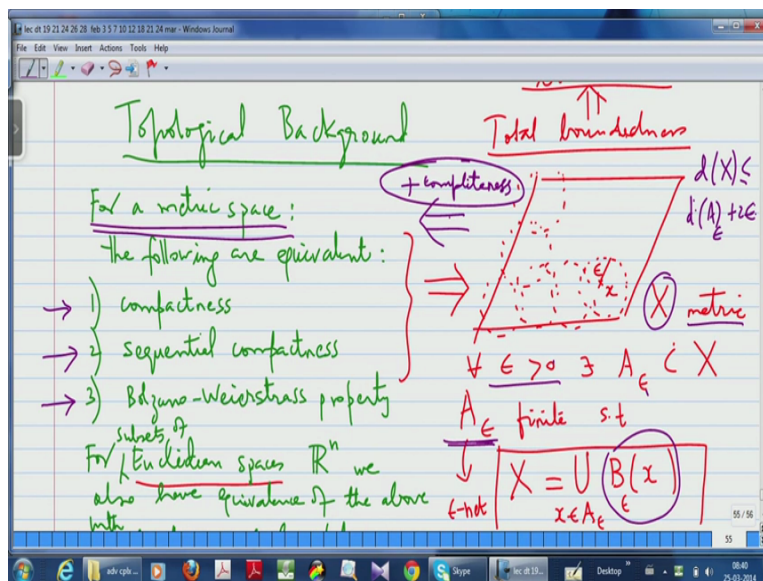 lec dt 19 21 24 26 28 feb 3 5 7 10 12 18 21 24 mar - Windows Journal
File Edit View Insert Actions Tools Help
Topological Background
For a metric space:
the following are equivalent:
1) compactness
2) sequential compactness
3) Bolzano-Weierstrass property
For subsets of Euclidean spaces ℝⁿ we
also have equivalence of the above
with
+ completeness.
⇐
⇒
⇑
Total boundedness
d(X) ≤
d(A_ϵ) + 2ϵ
ϵ
x
X metric
∀ ϵ > 0 ∃ A_ϵ ⊂ X
A_ϵ finite s.t
ϵ-net
X = ∪ B_ϵ(x)
x ∈ A_ϵ
55 / 56
55
adv cplx ...
Skype
lec dt 19...
Desktop
08:40
25-03-2014